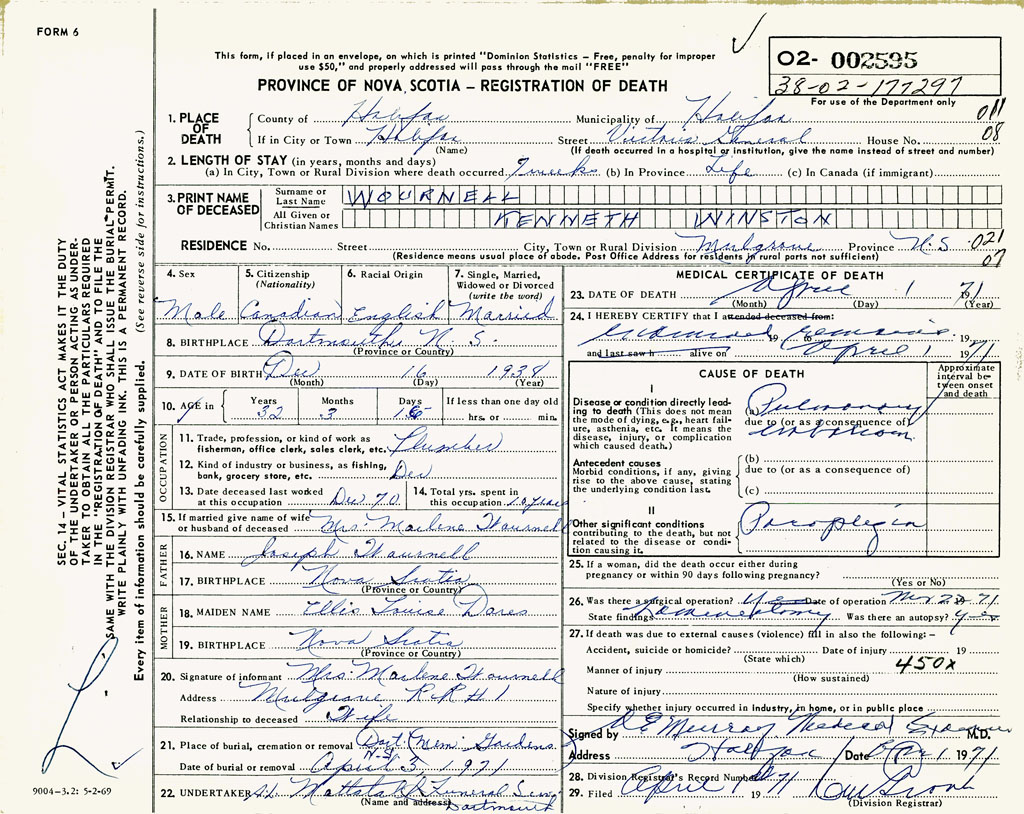 FORM 6
This form, if placed in an envelope, on which is printed "Dominion Statistics – Free, penalty for improper
use $50," and properly addressed will pass through the mail "FREE"
PROVINCE OF NOVA SCOTIA – REGISTRATION OF DEATH
02- 002595
38-02-177297
For use of the Department only
1. PLACE OF DEATH County of Halifax Municipality of Halifax 011
If in City or Town Halifax Street Victoria General House No. 08
(Name) (If death occurred in a hospital or institution, give the name instead of street and number)
2. LENGTH OF STAY (in years, months and days)
(a) In City, Town or Rural Division where death occurred 7 weeks (b) In Province Life (c) In Canada (if immigrant)
3. PRINT NAME OF DECEASED Surname or Last Name WOURNELL
All Given or Christian Names KENNETH WINSTON
RESIDENCE No. Street City, Town or Rural Division Mulgrave Province N.S. 021
(Residence means usual place of abode. Post Office Address for residents in rural parts not sufficient) 07
4. Sex 5. Citizenship (Nationality) 6. Racial Origin 7. Single, Married, Widowed or Divorced (write the word)
Male Canadian English Married
8. BIRTHPLACE Dartmouth N.S.
(Province or Country)
9. DATE OF BIRTH Dec 16 1938
(Month) (Day) (Year)
10. AGE in Years Months Days If less than one day old
32 3 16 hrs. or min.
OCCUPATION
11. Trade, profession, or kind of work as
fisherman, office clerk, sales clerk, etc. Plumber
12. Kind of industry or business, as fishing,
bank, grocery store, etc.
13. Date deceased last worked
at this occupation Dec 70
14. Total yrs. spent in
this occupation 10 years
15. If married give name of wife
or husband of deceased Mrs. Marlene Wournell
FATHER
16. NAME Joseph Wournell
17. BIRTHPLACE Nova Scotia
(Province or Country)
MOTHER
18. MAIDEN NAME Louise Dares
19. BIRTHPLACE Nova Scotia
(Province or Country)
20. Signature of informant Mrs. Marlene Wournell
Address Mulgrave R.R # 1
Relationship to deceased Wife
21. Place of burial, cremation or removal Dart Mem. Gardens
N.S.
Date of burial or removal April 3 1971
22. UNDERTAKER Mattatall Funeral
(Name and address) Dartmouth
MEDICAL CERTIFICATE OF DEATH
23. DATE OF DEATH April 1 71
(Month) (Day) (Year)
24. I HEREBY CERTIFY that I attended deceased from:
examined remains 19 to 19
and last saw h alive on April 1 1971
CAUSE OF DEATH
Approximate interval between onset and death
I
Disease or condition directly leading
to death (This does not mean
the mode of dying, e.g., heart failure,
asthenia, etc. It means the
disease, injury, or complication
which caused death.)
(a) Pulmonary
due to (or as a consequence of)
embolism
Antecedent causes
Morbid conditions, if any, giving
rise to the above cause, stating
the underlying condition last.
(b)
due to (or as a consequence of)
(c)
II
Other significant conditions
contributing to the death, but not
related to the disease or condition
causing it.
Paraplegia
25. If a woman, did the death occur either during
pregnancy or within 90 days following pregnancy?
(Yes or No)
26. Was there a surgical operation? Yes Date of operation 1971
State findings Laminectomy Was there an autopsy? yes
27. If death was due to external causes (violence) fill in also the following: –
Accident, suicide or homicide? Date of injury 19
(State which)
Manner of injury 450X
(How sustained)
Nature of injury
Specify whether injury occurred in industry, in home, or in public place
Signed by D E Murray Medical Examiner M.D.
Address Halifax Date Apr 1 1971
28. Division Registrar's Record Number
29. Filed April 1 1971
(Division Registrar)
SEC. 14 – VITAL STATISTICS ACT MAKES IT THE DUTY
OF THE UNDERTAKER OR PERSON ACTING AS UNDER-
TAKER TO OBTAIN ALL THE PARTICULARS REQUIRED
IN THE "REGISTRATION OF DEATH" AND TO FILE THE
SAME WITH THE DIVISION REGISTRAR WHO SHALL ISSUE THE BURIAL PERMIT.
WRITE PLAINLY WITH UNFADING INK. THIS IS A PERMANENT RECORD.
Every item of information should be carefully supplied. (See reverse side for instructions.)
9004-3.2: 5-2-69